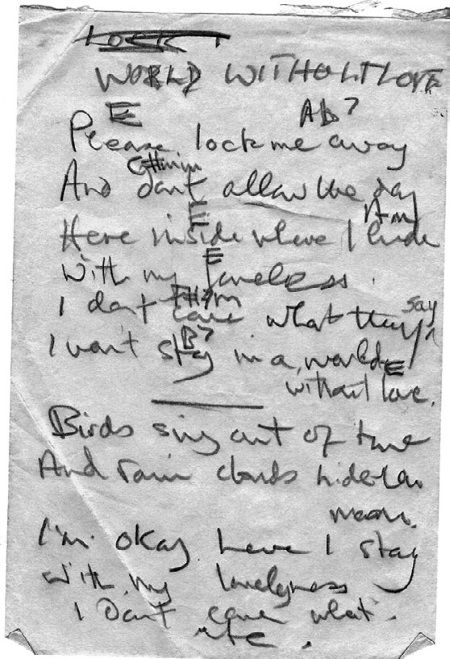 LOCK
WORLD WITHOUT LOVE
E Ab7
Please lock me away
C#min
And dont allow the day
E Am
Here inside where I hide
E
with my loneless.
F#m say
I dont care what they
B7
I wont stay in a world E
without love.
Birds sing out of tune
And rain clouds hide the
moon.
I'm okay here I stay
with my lonelyness
I Dont care what.
etc.